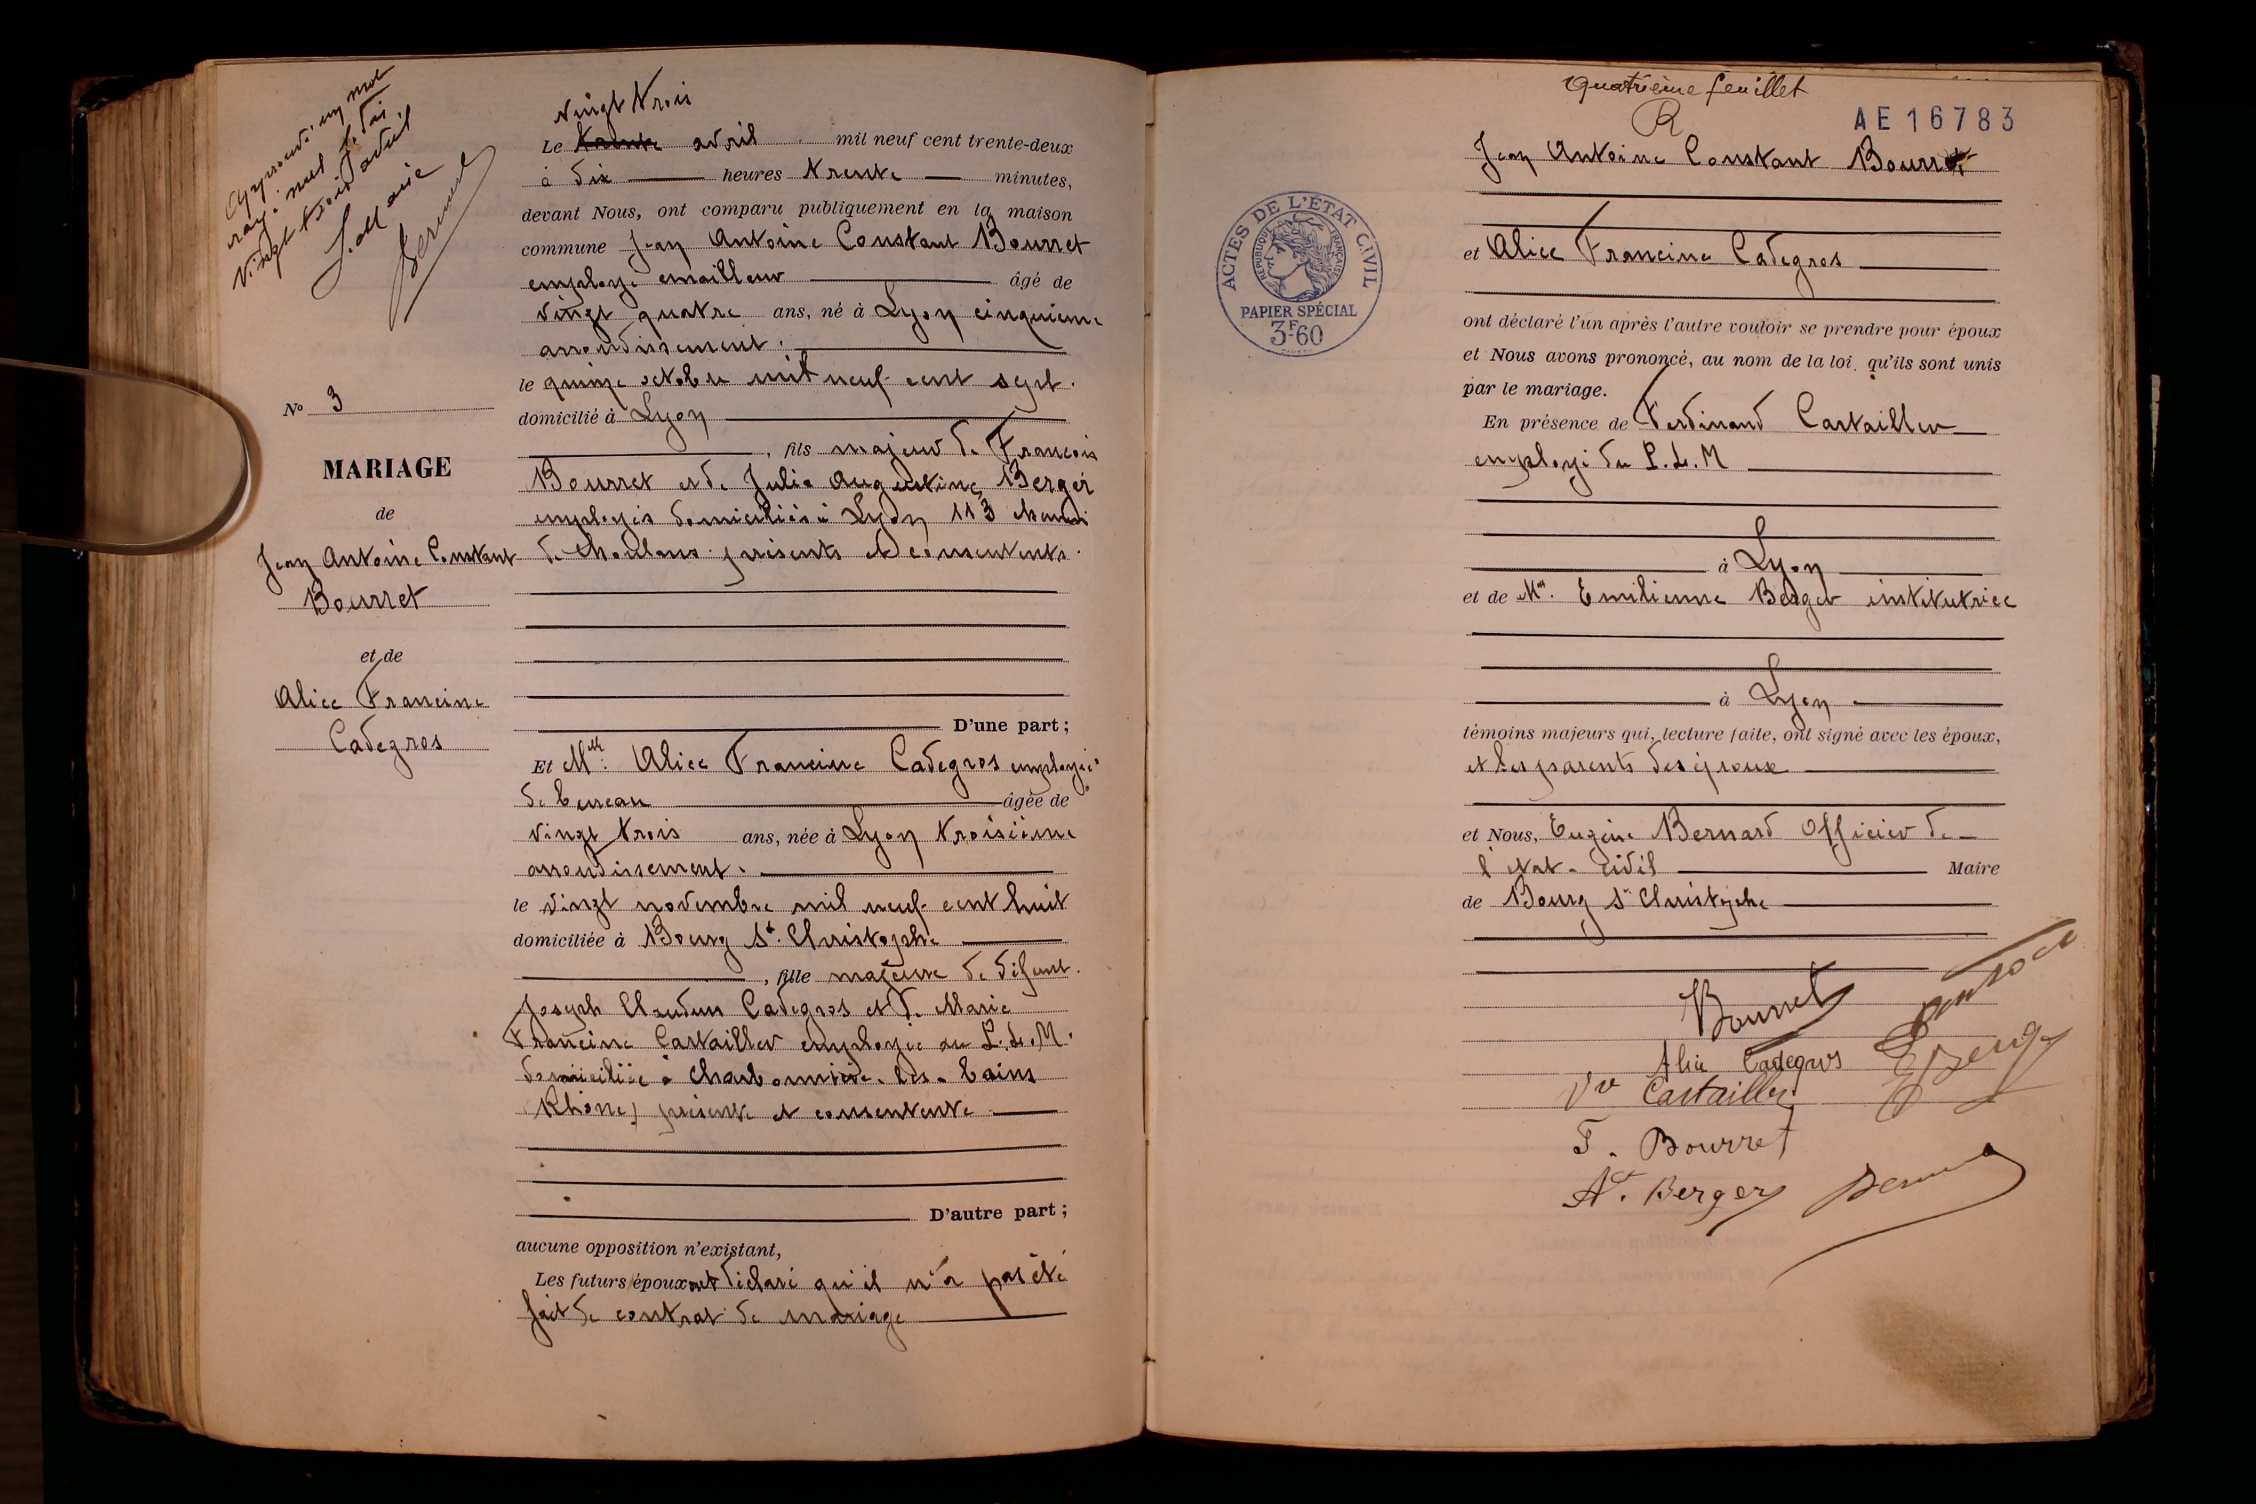 Approuvé un mot
rayé nul je dis
Vingt trois avril
Le Maire
Bernard
N° 3
MARIAGE
de
Jean Antoine Constant
Bourret
et de
Alice Francine
Cadegros
Vingt trois
Le trente avril mil neuf cent trente-deux
à dix heures trente minutes,
devant Nous, ont comparu publiquement en la maison
commune Jean Antoine Constant Bourret
employé emailleur âgé de
vingt quatre ans, né à Lyon cinquième
arrondissement.
le quinze octobre mil neuf cent sept.
domicilié à Lyon
, fils majeur de François
Bourret et de Julie Augustine Berger
employés domiciliés à Lyon 113 chemin
de Choulans. présents et consentents.
D'une part;
Et Mlle. Alice Francine Cadegros employée
de bureau âgée de
vingt trois ans, née à Lyon troisième
arrondissement.
le vingt novembre mil neuf cent huit
domiciliée à Bourg St. Christophe
, fille majeure de défunt.
Joseph Claudius Cadegros et de Marie
Francine Castailler employée au P.L.M.
domiciliée à Charbonnière-les-bains
(Rhône) présente et consentente
D'autre part;
aucune opposition n'existant,
Les futurs époux ont déclaré qu'il n'a pas été
fait de contrat de mariage
Quatrième feuillet
R
AE 16783
Jean Antoine Constant Bourret
ACTES DE L'ÉTAT CIVIL
REPUBLIQUE FRANÇAISE
PAPIER SPÉCIAL
3F.60
et Alice Francine Cadegros
ont déclaré l'un après l'autre vouloir se prendre pour époux
et Nous avons prononcé, au nom de la loi, qu'ils sont unis
par le mariage.
En présence de Ferdinand Castailler
employé du P.L.M
à Lyon
et de Me. Emilienne Berger institutrice
à Lyon
témoins majeurs qui, lecture faite, ont signé avec les époux,
et les parents des époux
et Nous, Eugène Bernard Officier de
l'état-civil Maire
de Bourg St Christophe
Bourret
Alice Cadegros
E Berger
Vve Castailler
F. Bourret
Ae. Berger
Bernard